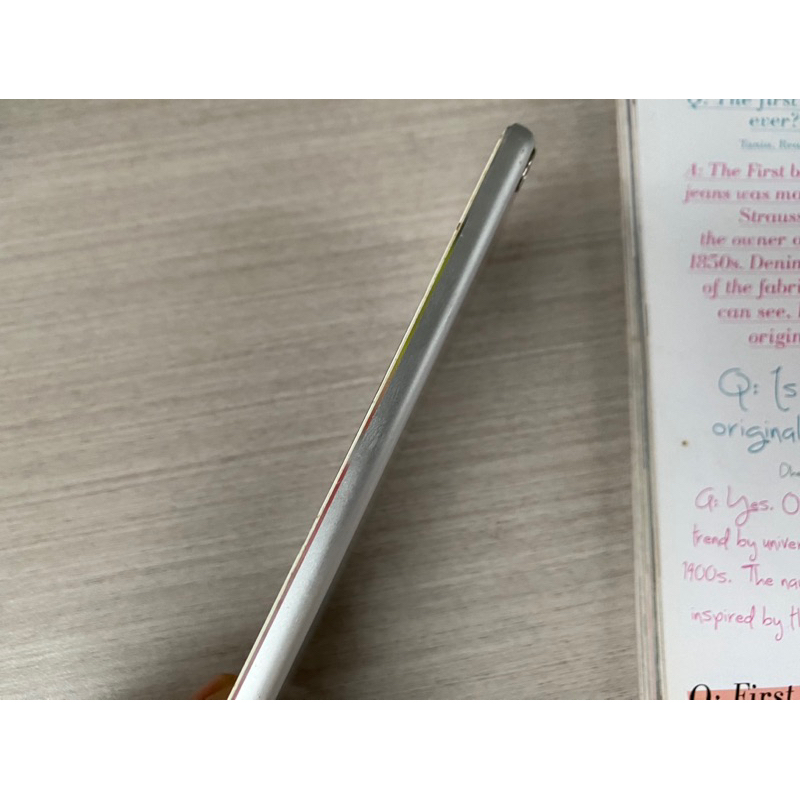 Q: The first
ever?
A: The First b
jeans was ma
Strauss
the owner o
1850s. Denim
of the fabri
can see,
origin
Q: Is
original
A: Yes. O
trend by univer
1900s. The na
inspired by th
Q: First